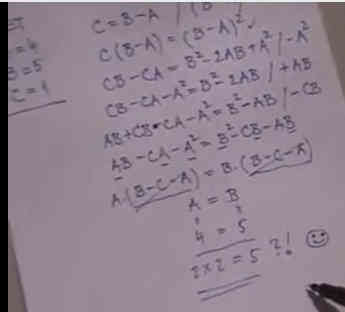 =4
B=5
C=1
C=B-A / (B
C(B-A) = (B-A)²
CB-CA = B²-2AB+A² /-A²
CB-CA-A²=B²-2AB /+AB
AB+CB-CA-A²=B²-AB /-CB
AB-CA-A²=B²-CB-AB
A·(B-C-A) = B·(B-C-A)
A = B
4 = 5
2x2=5 ?!